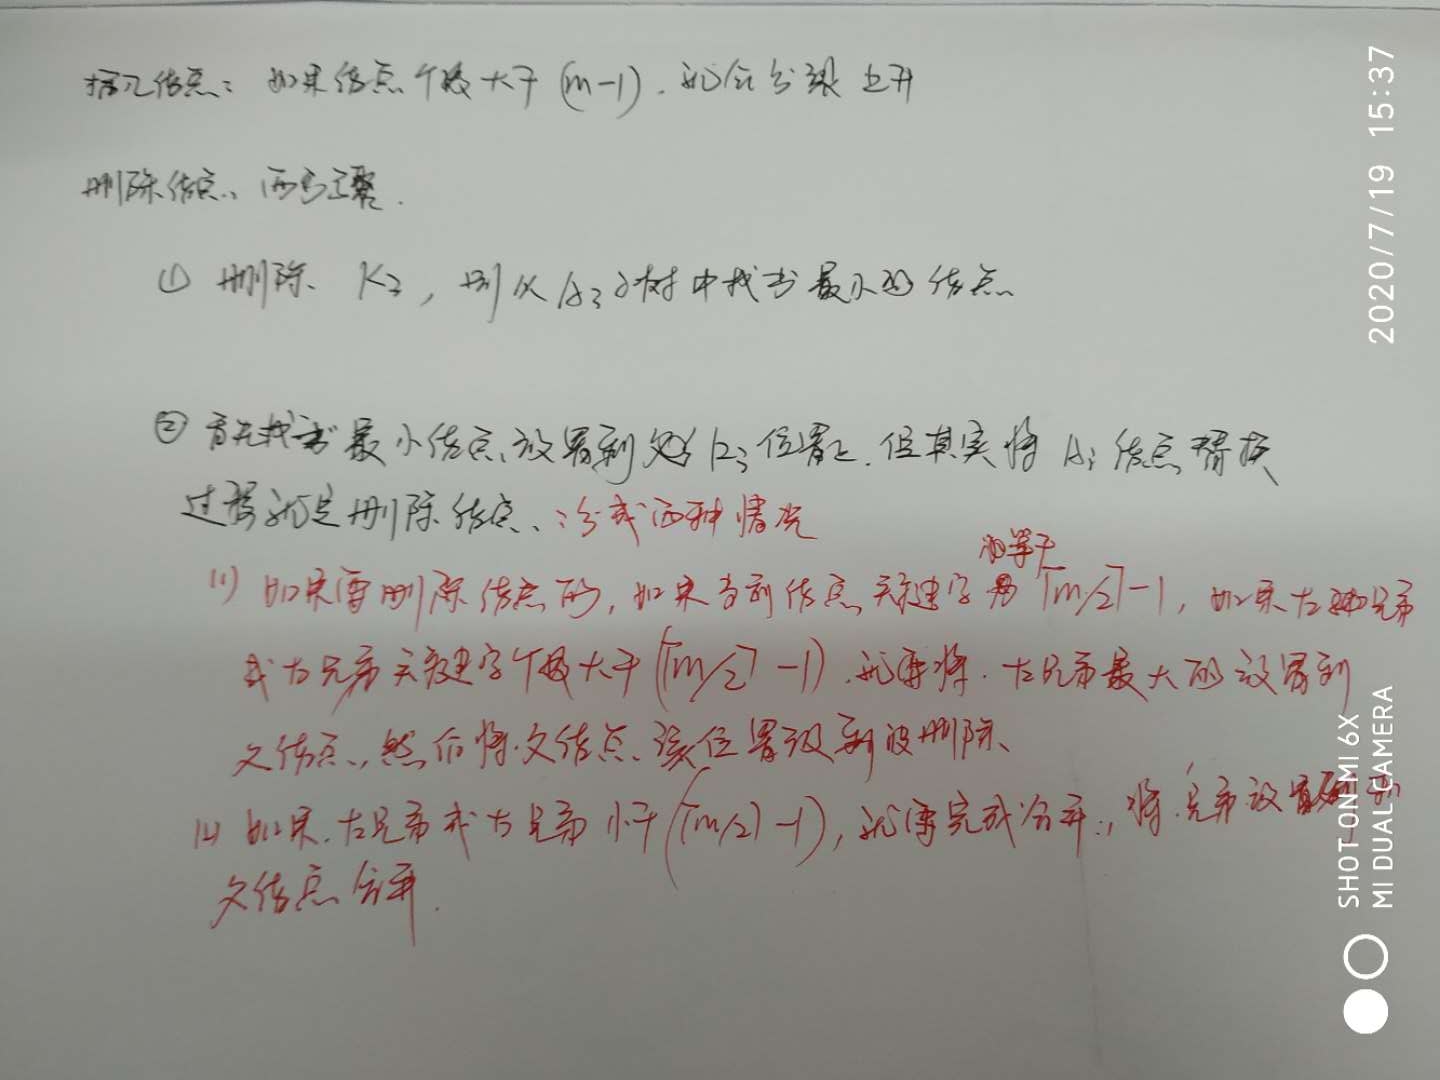 插入结点：如果结点个数大于(m-1)，就会分裂上升
删除结点、两步骤.
① 删除、K₃，则从A₃子树中找出最小的结点
② 首先找出最小结点、放置到 Kᵢ位置上，但其实将 Aᵢ 结点替换
过程就是删除结点、：分成两种情况
小等于
(1) 如果要删除结点的，如果当前结点关键字 ⌈m/2⌉-1，如果左兄弟
或右兄弟关键字个数大于(⌈m/2⌉-1)，就要将、左兄弟最大的放置到
父结点、，然后将父结点、该位置放到被删除、
(2 如果、左兄弟或右兄弟小于(⌈m/2⌉-1)，就要完成合并、，将兄弟放置到
父结点合并.
2020/7/19 15:37
SHOT ON MI 6X
MI DUAL CAMERA